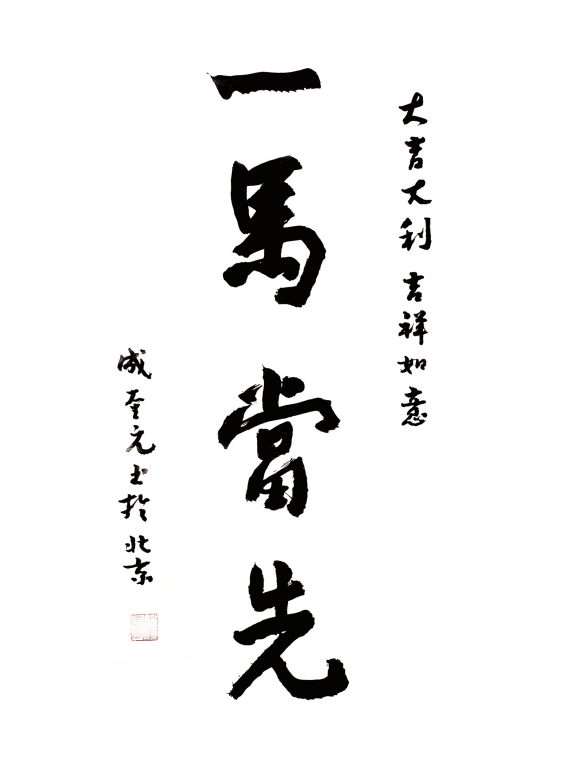 大吉大利 吉祥如意
一馬當先
成奎元书於北京